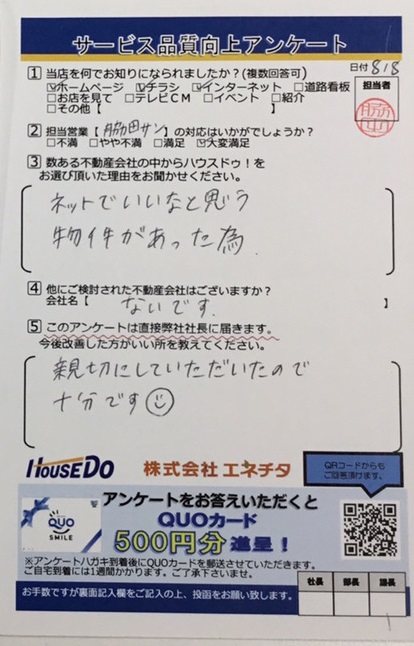 サービス品質向上アンケート
日付 8/8
担当者
1 当店を何でお知りになられましたか？(複数回答可)
☑ホームページ ☑チラシ ☑インターネット □道路看板
□お店を見て □テレビＣＭ □イベント □紹介
□その他【 】
2 担当営業【 脇田サン 】の対応はいかがでしょうか？
□不満 □やや不満 □満足 ☑大変満足
3 数ある不動産会社の中からハウスドゥ！を
お選び頂いた理由をお聞かせください。
ネットでいいなと思う
物件があった為.
4 他にご検討された不動産会社はございますか？
会社名【 ないです. 】
5 このアンケートは直接弊社社長に届きます。
今後改善した方がいい所を教えてください。
親切にしていただいたので
十分です☺
HOUSEDO 株式会社 エネチタ
QRコードからも
ご回答頂けます。
アンケートをお答えいただくと
QUOカード
500円分 進呈！
QUO
SMILE
※アンケートハガキ到着後にQUOカードを郵送させていただきます。
ご自宅到着には1週間かかります。ご了承下さいませ。
お手数ですが裏面記入欄をご記入の上、投函をお願い致します。
社長 部長 課長